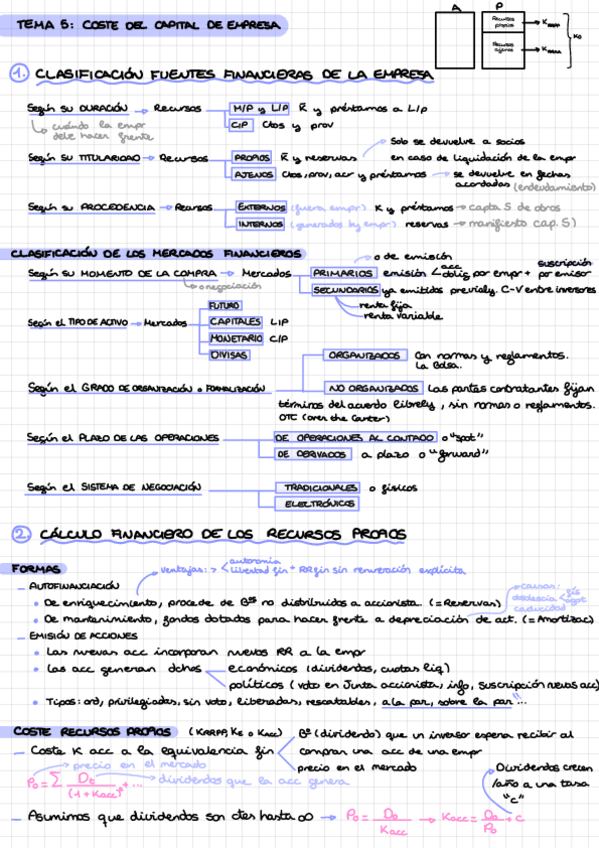 TEMA 5: COSTE DEL CAPITAL DE EMPRESA
A P
Recursos propios → KRRPP
Recursos ajenos → KRRAA
Ko
1. CLASIFICACIÓN FUENTES FINANCIERAS DE LA EMPRESA
Según su DURACIÓN → Recursos M/P y L/P K y préstamos a L/P
cuándo la empr debe hacer frente
C/P Ctos y prov
Solo se devuelve a socios
Según SU TITULARIDAD → Recursos PROPIOS K y reservas en caso de liquidación de la empr
AJENOS Ctos, prov, acr y préstamos → se devuelve en fechas
acordadas (endeudamiento)
Según su PROCEDENCIA → Recursos EXTERNOS (fuera empr) K y préstamos → capta S de otros
INTERNOS (generados by empr) reservas → manifiesto cap. S)
CLASIFICACIÓN DE LOS MERCADOS FINANCIEROS
o de emisión
Según SU MOMENTO DE LA COMPRA → Mercados PRIMARIOS emisión < acc oblig por empr + suscripción por emisor
o negociación
SECUNDARIOS ya emitidos previa/. C-V entre inversores
renta fija
renta variable
FUTURO
Según el TIPO DE ACTIVO → Mercados CAPITALES L/P
MONETARIO C/P
DIVISAS
ORGANIZADOS Con normas y reglamentos.
La Bolsa.
Según el GRADO DE ORGANIZACIÓN o FORMALIZACIÓN NO ORGANIZADOS Las partes contratantes fijan
términos del acuerdo librely, sin normas o reglamentos.
OTC (over the Counter)
Según el PLAZO DE LAS OPERACIONES DE OPERACIONES AL CONTADO o "spot"
DE DERIVADOS a plazo o "forward"
Según el SISTEMA DE NEGOCIACIÓN TRADICIONALES o físicos
ELECTRÓNICOS
2. CÁLCULO FINANCIERO DE LOS RECURSOS PROPIOS
FORMAS
ventajas: > < autonomía
libertad fin + RR fin sin remuneración explícita
— AUTOFINANCIACIÓN
• De enriquecimiento, procede de Bºs no distribuidos a accionista. (= Reservas)
causas: físobsolescia
caducidad
• De mantenimiento, fondos dotados para hacer frente a depreciación de act. (= Amortizac)
— EMISIÓN DE ACCIONES
• Las nuevas acc incorporan nuevos RR a la empr
• Las acc generan dchos económicos (dividendos, cuotas liq)
políticos (voto en Junta accionista, info, suscripción nuevas acc)
• Tipos: ord, privilegiadas, sin voto, liberadas, rescatables, a la par, sobre la par...
COSTE RECURSOS PROPIOS (KRRPP, Ke o Kacc) Bº (dividendo) que un inversor espera recibir al
— Coste K acc a la equivalencia fin comprar una acc de una empr
precio en el mercado
precio en el mercado
P₀ = Σ Dt / (1 + Kacc)ⁿ + ... → dividendos que la acc genera
Dividendos crecen
/año a una tasa
"c"
— Asumimos que dividendos son ctes hasta ∞ → P₀ = D₀ / Kacc → Kacc = D₀ / P₀ + c